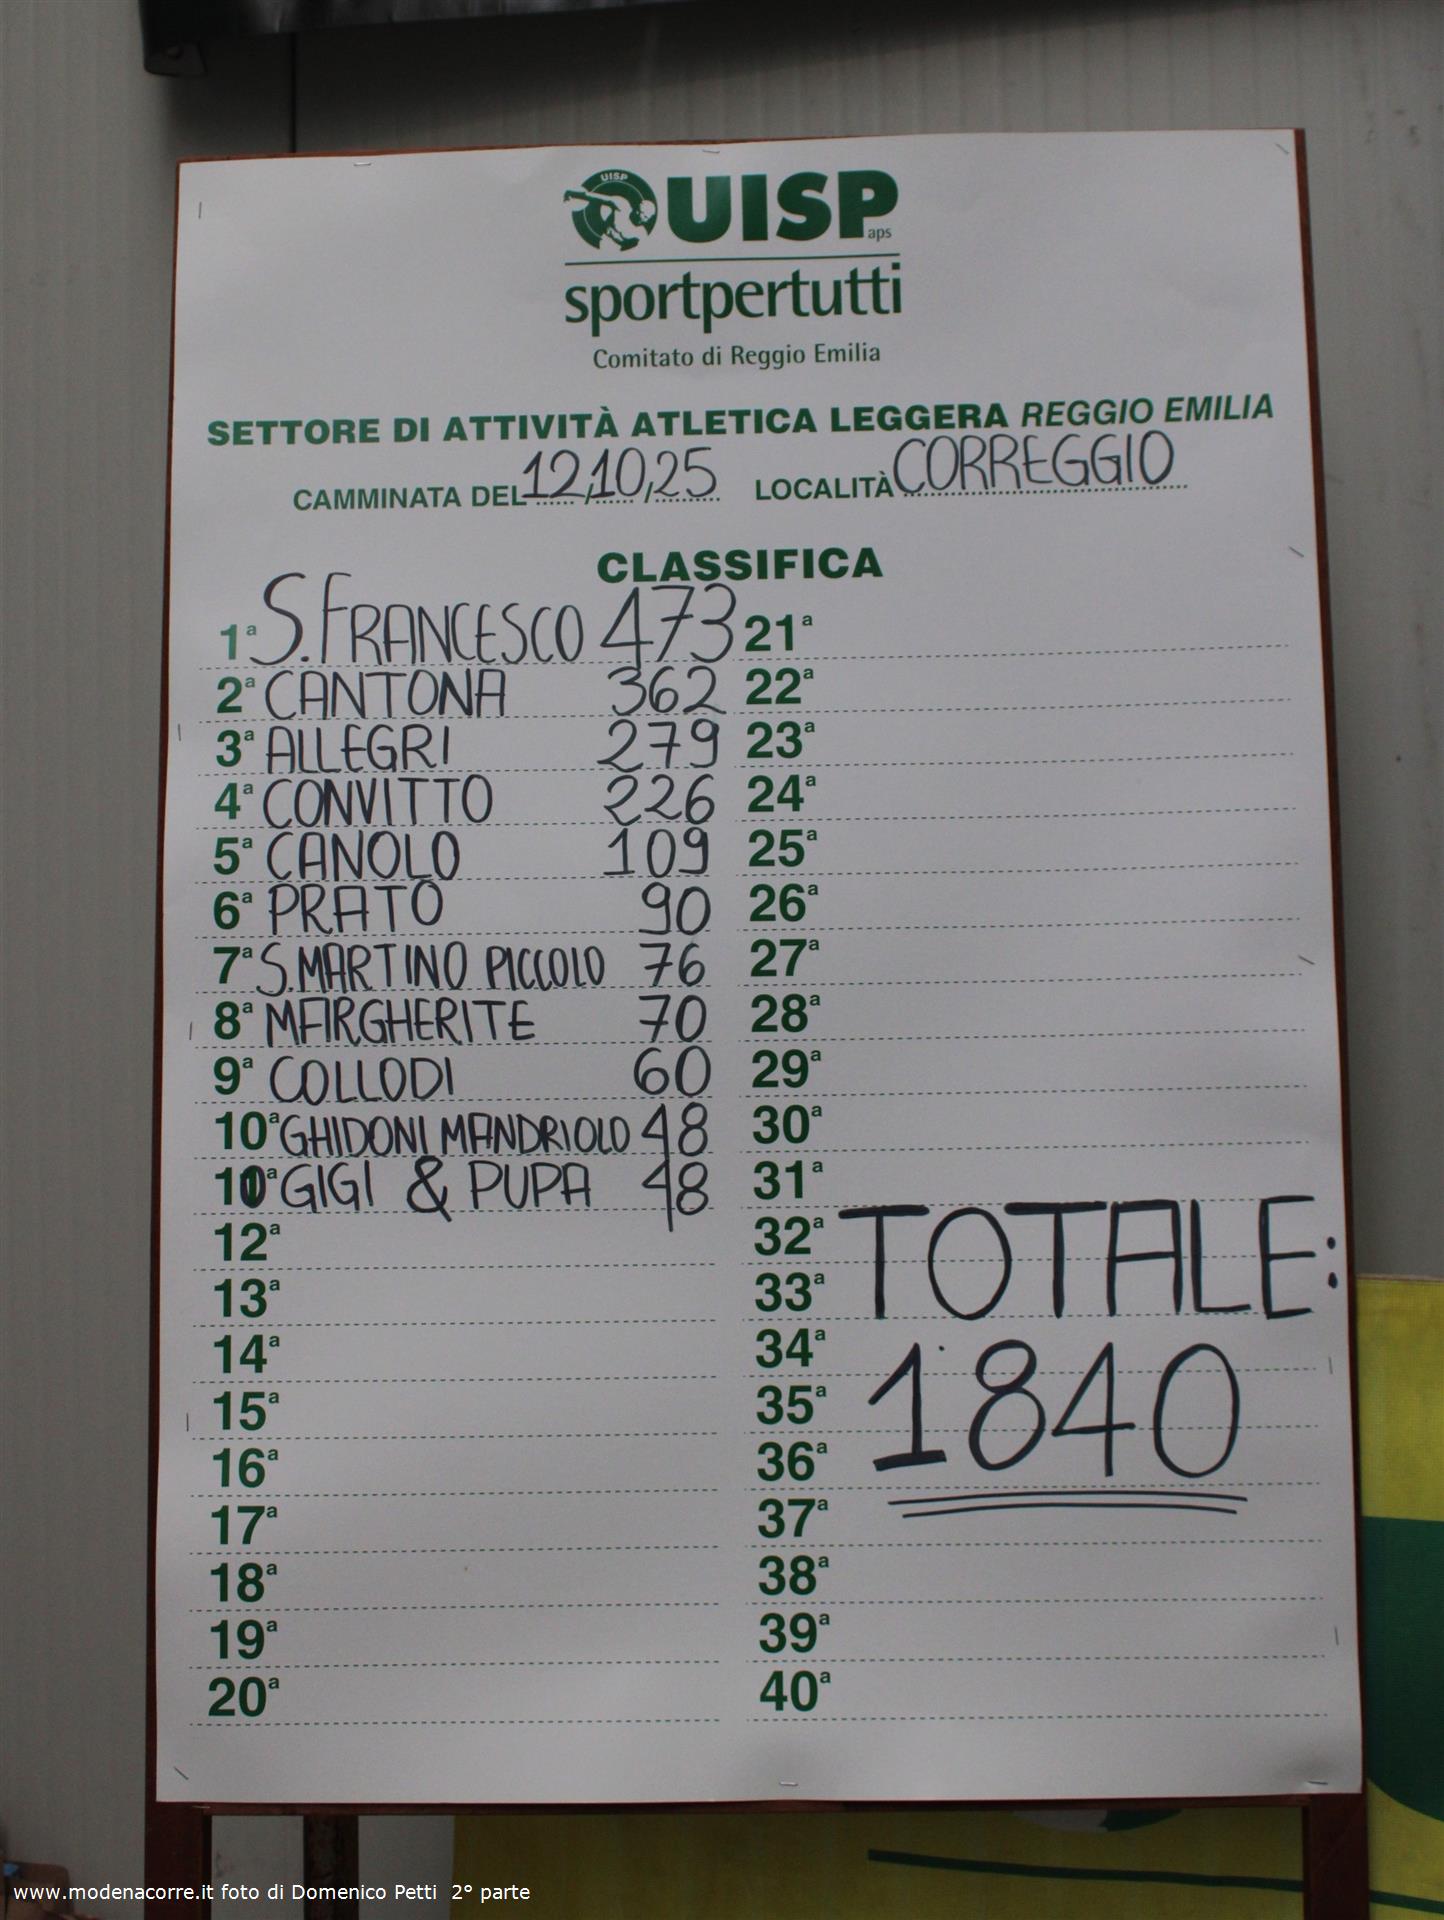 UISP
UISP
aps
sportpertutti
Comitato di Reggio Emilia
SETTORE DI ATTIVITÀ ATLETICA LEGGERA REGGIO EMILIA
CAMMINATA DEL 12/10/25 LOCALITÀ CORREGGIO
CLASSIFICA
1ª S. FRANCESCO 473
2ª CANTONA 362
3ª ALLEGRI 279
4ª CONVITTO 226
5ª CANOLO 109
6ª PRATO 90
7ª S. MARTINO PICCOLO 76
8ª MARGHERITE 70
9ª COLLODI 60
10ª GHIDONI MANDRIOLO 48
10ª GIGI & PUPA 48
12ª
13ª
14ª
15ª
16ª
17ª
18ª
19ª
20ª
21ª
22ª
23ª
24ª
25ª
26ª
27ª
28ª
29ª
30ª
31ª
32ª
33ª
34ª
35ª
36ª
37ª
38ª
39ª
40ª
TOTALE:
1840
www.modenacorre.it foto di Domenico Petti 2° parte